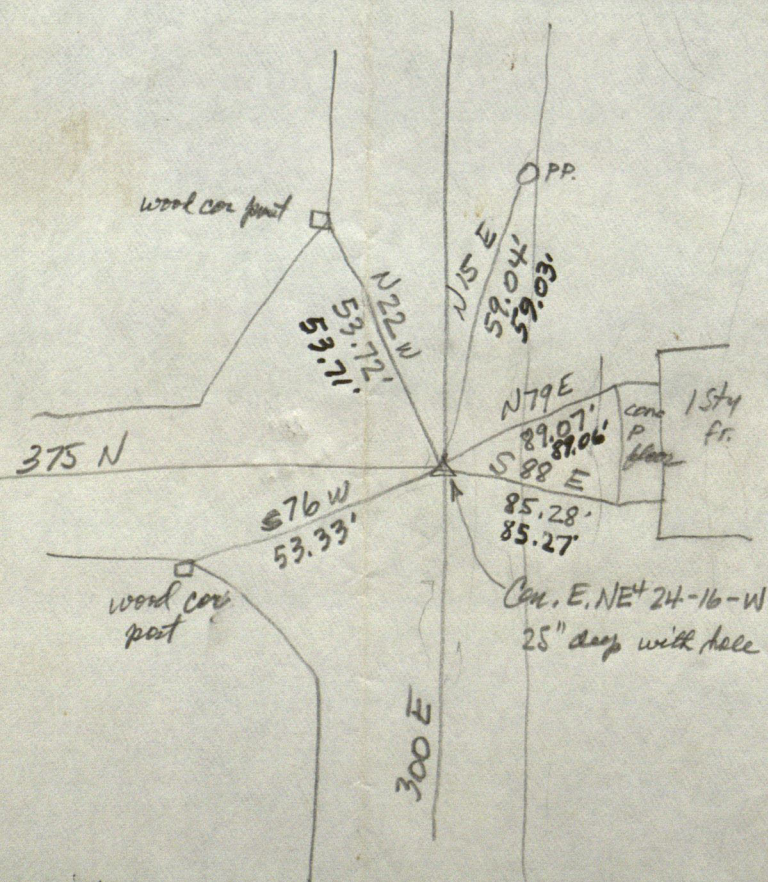 P.P.
wood cor post
N 15 E
59.04'
59.03'
N 22 W
53.72'
53.71'
N 79 E
89.07'
89.06'
conc
P
floor
1 Sty
fr.
375 N
S 88 E
85.28'
85.27'
S 76 W
53.33'
wood cor
post
Con. E. NE4 24-16-W
25" deep with hole
300 E